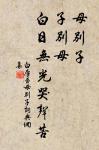 母別子
子別母
白日無光哭聲苦
白居易母別子詩
集